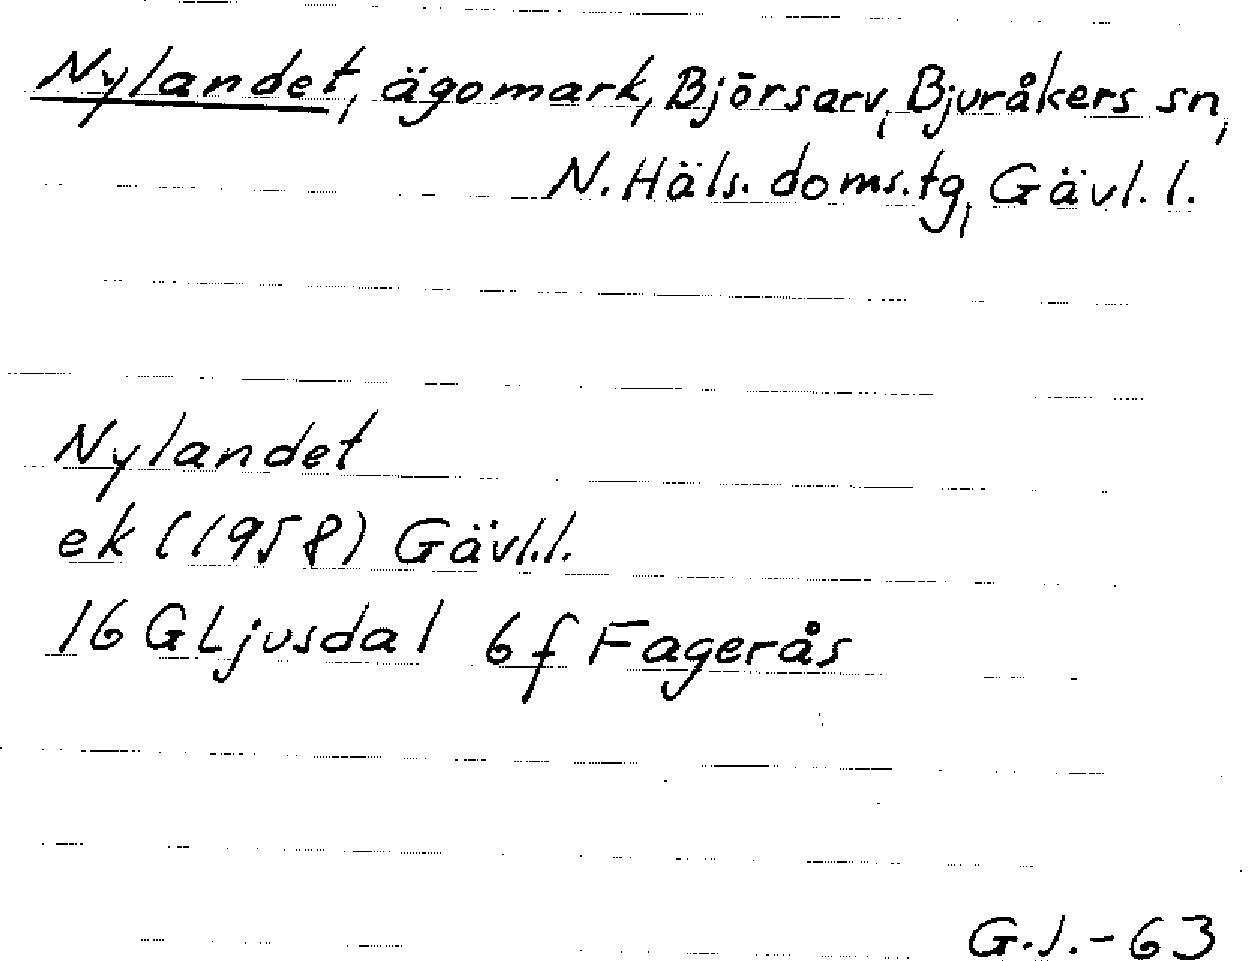 Nylandet, ägomark, Björsarv, Bjuråkers sn,
N. Häls. doms.tg, Gävl. l.
Nylandet
ek (1958) Gävl.l.
16 G Ljusdal 6f Fagerås
G.J.-63